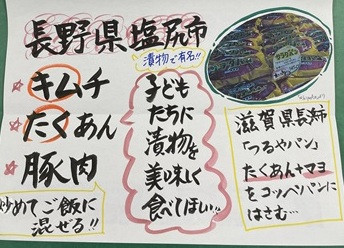 長野県塩尻市
漬物で有名!!
☆キムチ
☆たくあん
☆豚肉
炒めてご飯に
混ぜる!!
子ども
たちに
漬物を
美味しく
食べてほしい!!
滋賀県長浜市
「つるやパン」
たくあん+マヨ
をコッペパンに
はさむ…